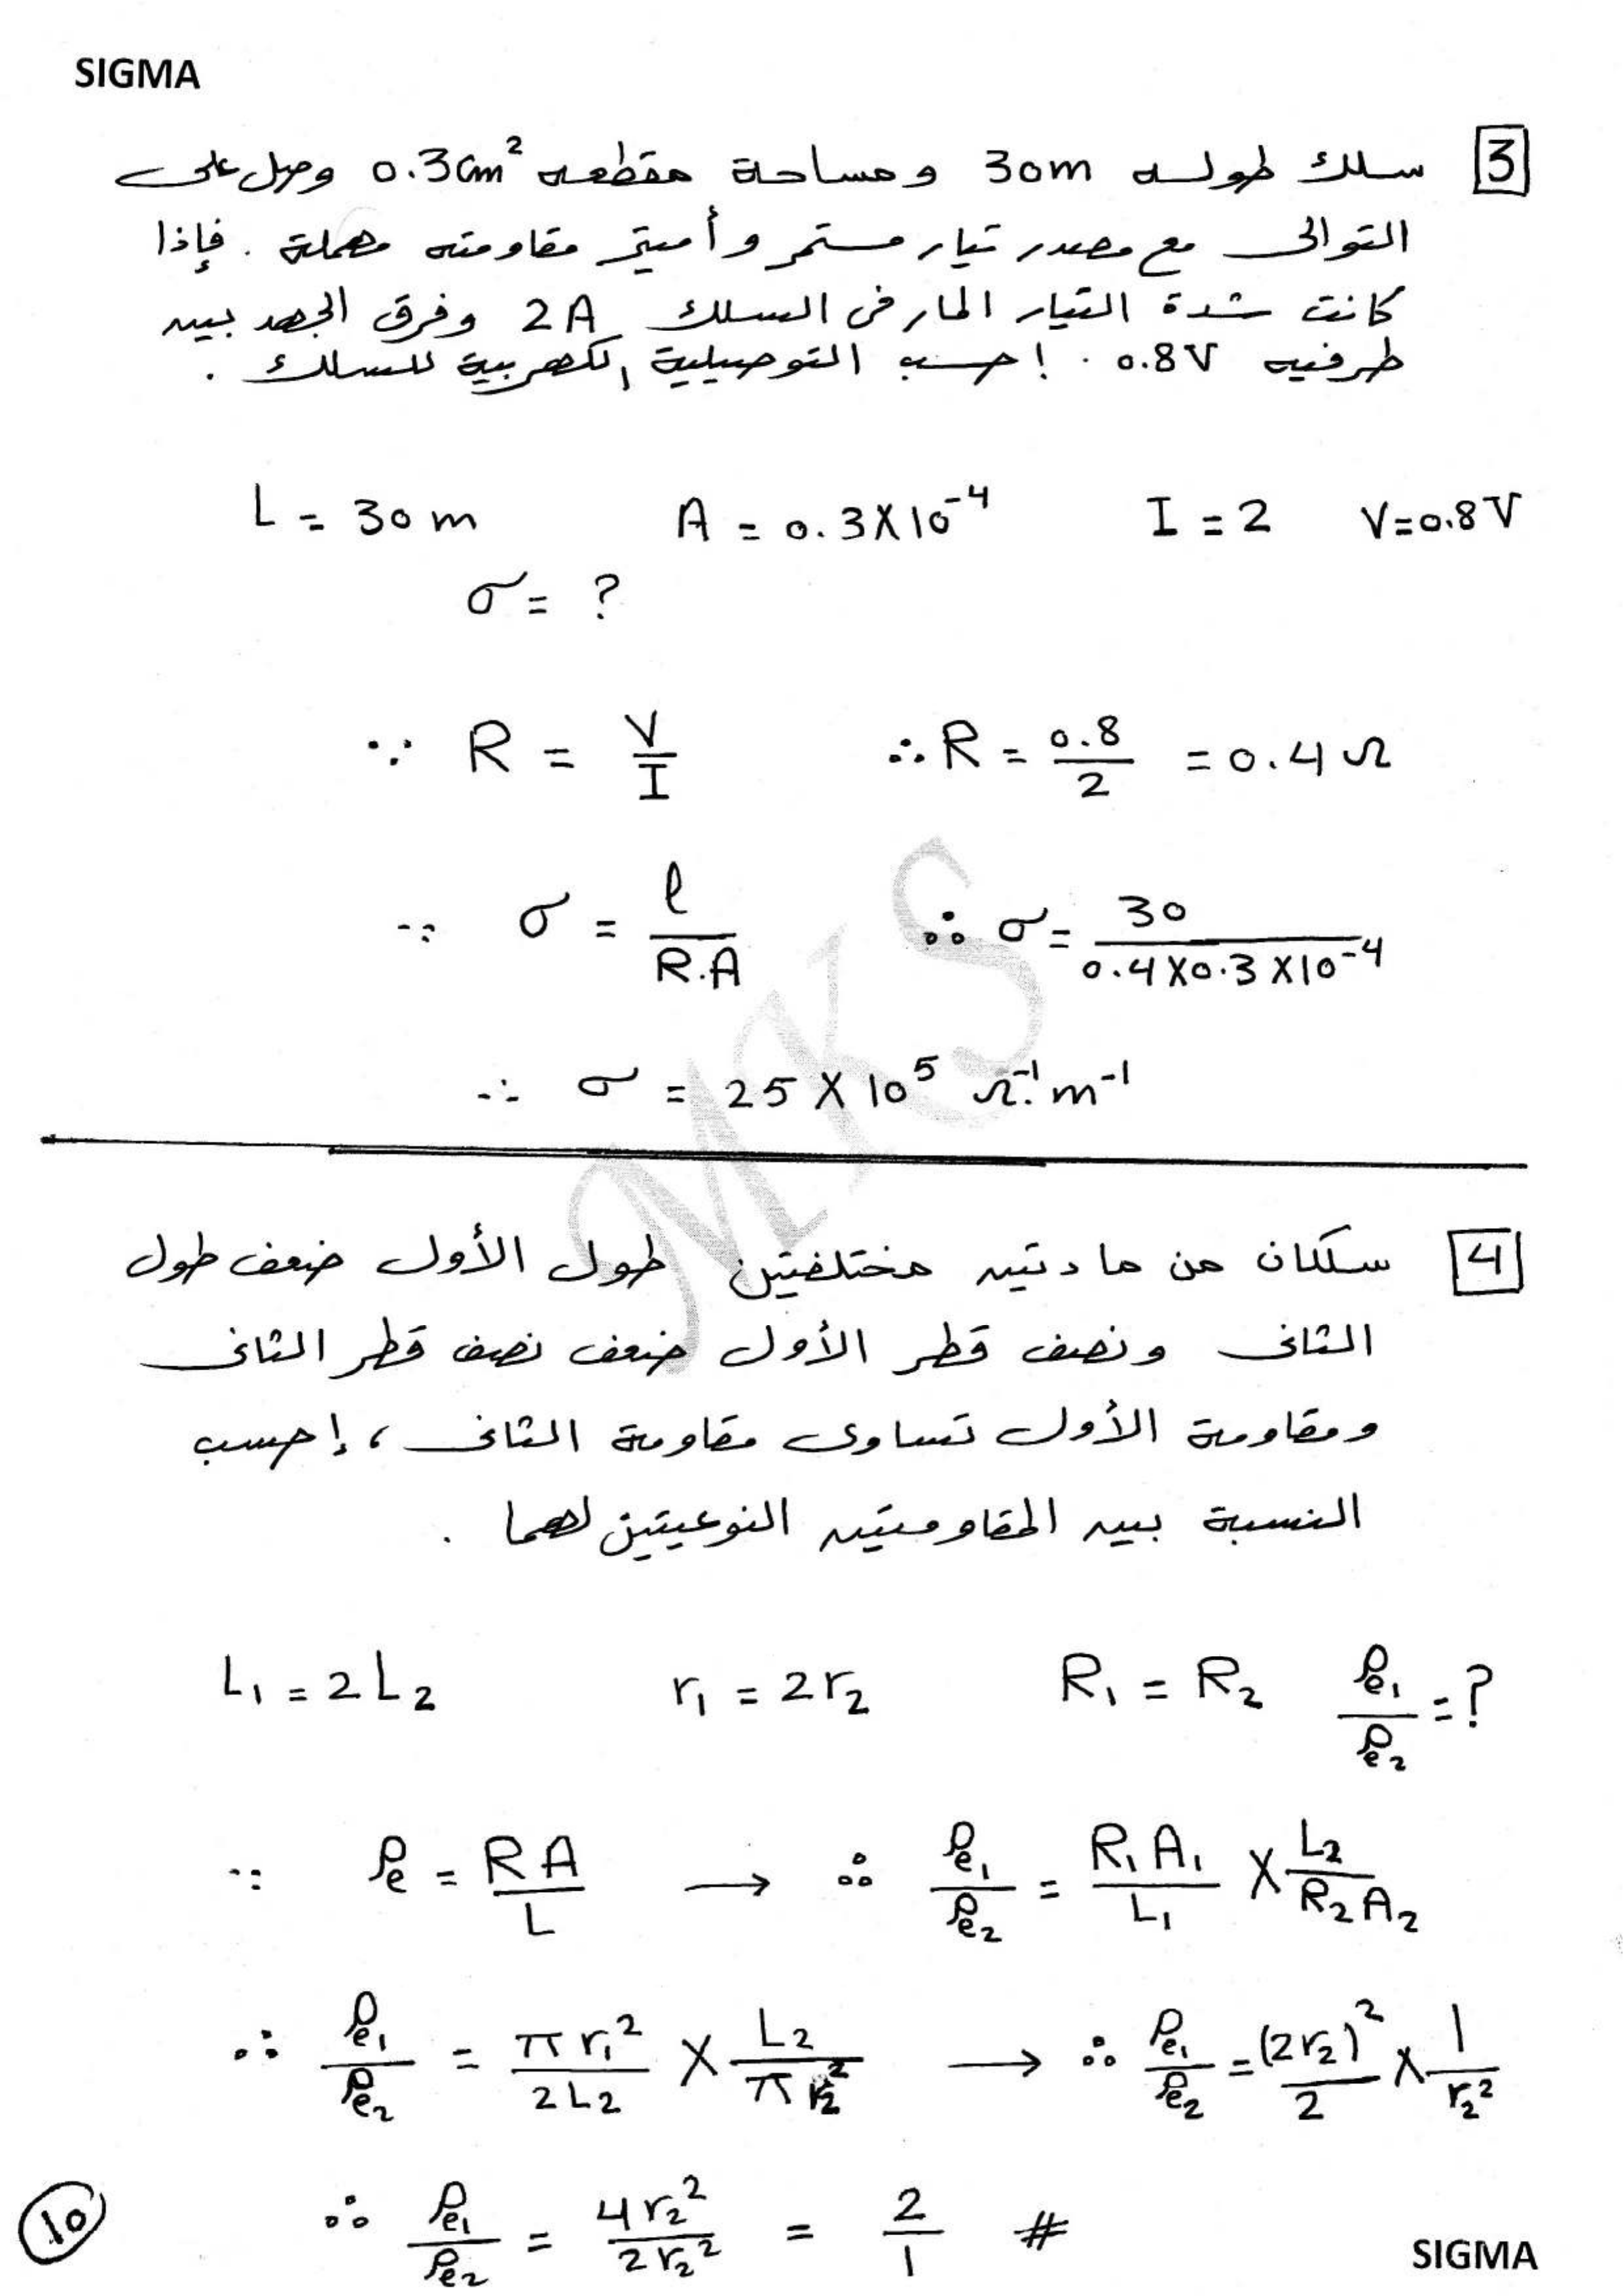 SIGMA
3 سلك طوله 30m ومساحة مقطعه 0.3cm² وصل على
التوالى مع مصدر تيار مستمر وأميتر مقاومته مهملة . فإذا
كانت شدة التيار المار فى السلك 2A وفرق الجهد بين
طرفيه 0.8V . احسب التوصيلية الكهربية للسلك .
L = 30 m A = 0.3X10⁻⁴ I = 2 V=0.8V
σ = ?
∵ R = V/I ∴ R = 0.8/2 = 0.4 Ω
∵ σ = ℓ/R.A ∴ σ = 30/0.4X0.3X10⁻⁴
∴ σ = 25 X 10⁵ Ω⁻¹.m⁻¹
MKS
4 سلكان من مادتين مختلفتين طول الأول ضعف طول
الثانى ونصف قطر الأول ضعف نصف قطر الثانى
ومقاومة الأول تساوى مقاومة الثانى ، إحسب
النسبة بين المقاومتين النوعيتين لهما .
L₁ = 2L₂ r₁ = 2r₂ R₁ = R₂ ρe₁/ρe₂ = ?
∵ ρe = RA/L → ∴ ρe₁/ρe₂ = R₁A₁/L₁ X L₂/R₂A₂
∴ ρe₁/ρe₂ = πr₁²/2L₂ X L₂/πr₂² → ∴ ρe₁/ρe₂ = (2r₂)²/2 X 1/r₂²
∴ ρe₁/ρe₂ = 4r₂²/2r₂² = 2/1 #
10
SIGMA